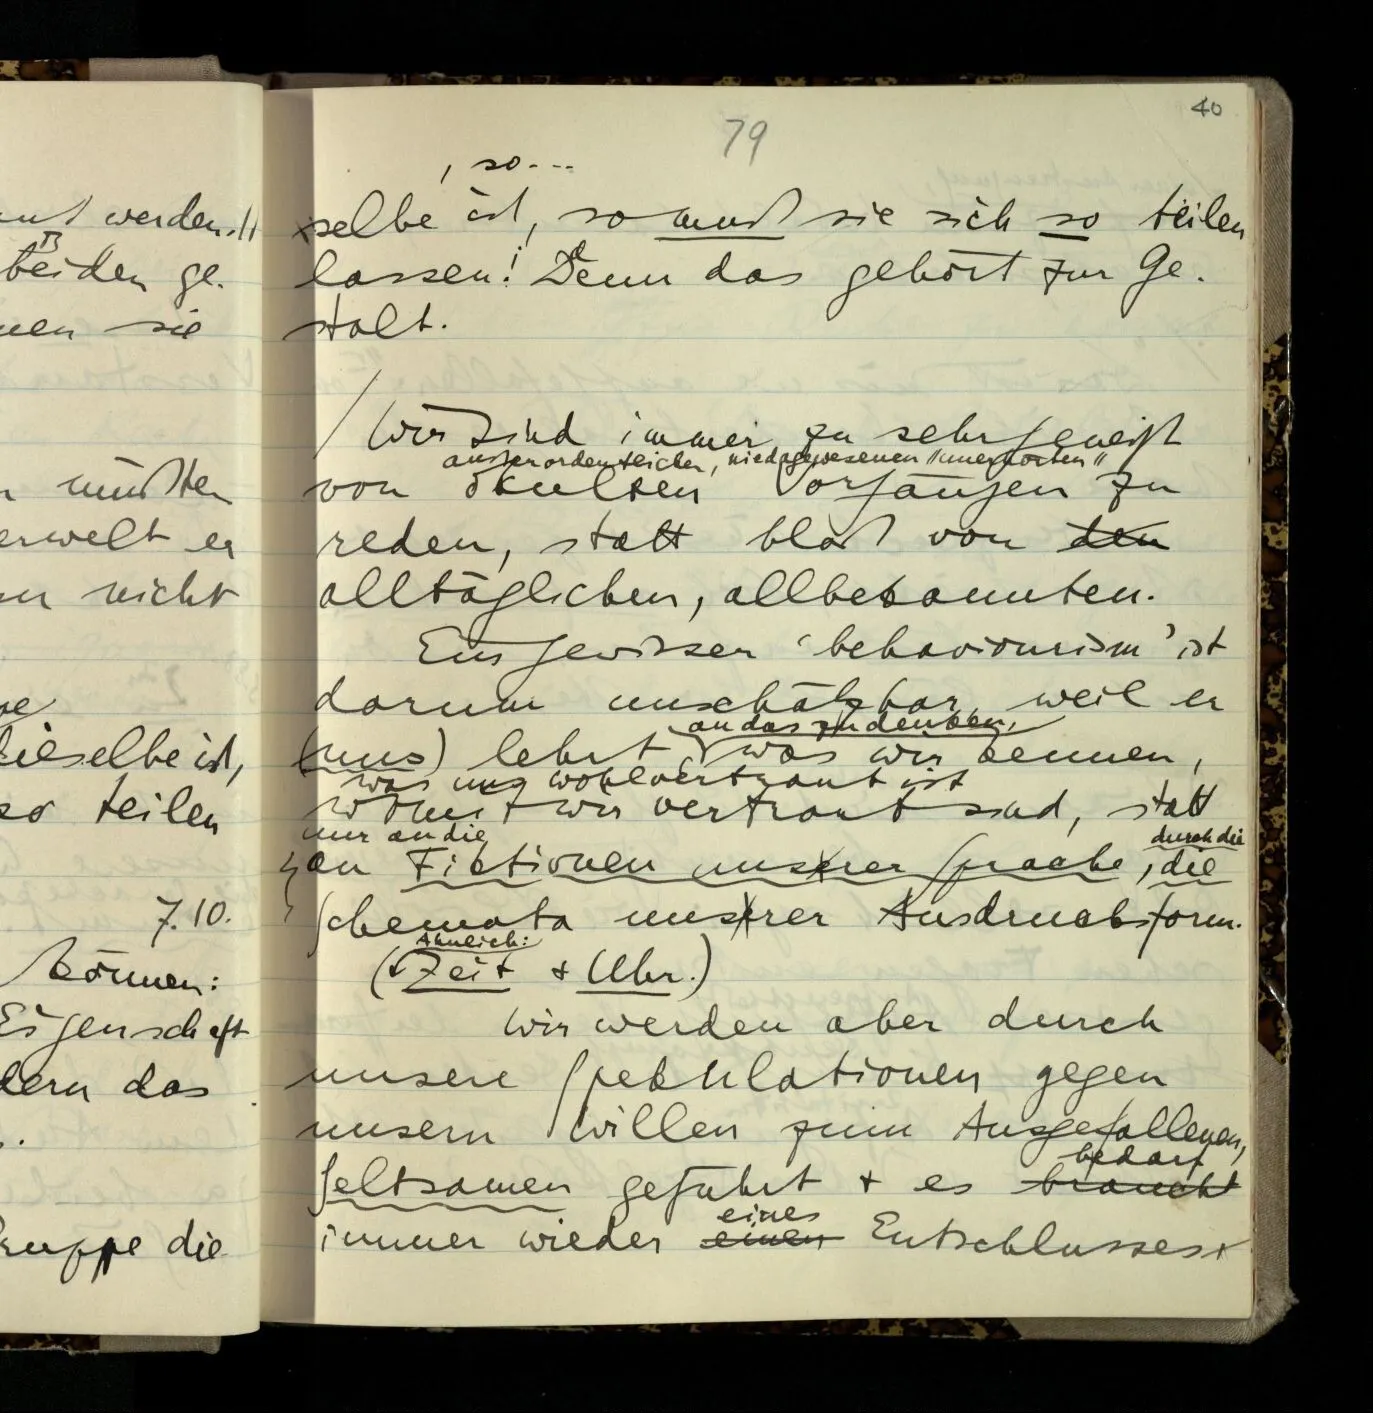 40
79
, so---
selbe ist, so muß sie sich so teilen
lassen! Denn das gehört zur Ge-
stalt.
/ Wir sind immer zu sehr geneigt
außerordentlichen, niedagewesenen "unerhörten"
von okulten Vorgängen zu
reden, statt bloß von den
alltäglichen, allbekannten.
Ein gewisser 'behaviourism' ist
darum unschätzbar, weil er
an das zu denken,
(uns) lehrt was wir kennen,
was uns wohlvertraut ist
womit wir vertraut sind, statt
nur an die durch die
an Fictionen unserer Sprache, die
Schemata unserer Ausdrucksform.
Ähnlich:
(+ Zeit + Uhr.)
Wir werden aber durch
unsere Spekulationen gegen
unsern Willen zum Ausgefallenen,
bedarf
Seltsamen geführt + es braucht
eines
immer wieder einen Entschlusses +
werden. //
beiden ge-
sie
müßten
erwelt er
nicht
dieselbe ist,
so teilen
7.10.
können:
Eigenschaft
dern das
Gruppe die